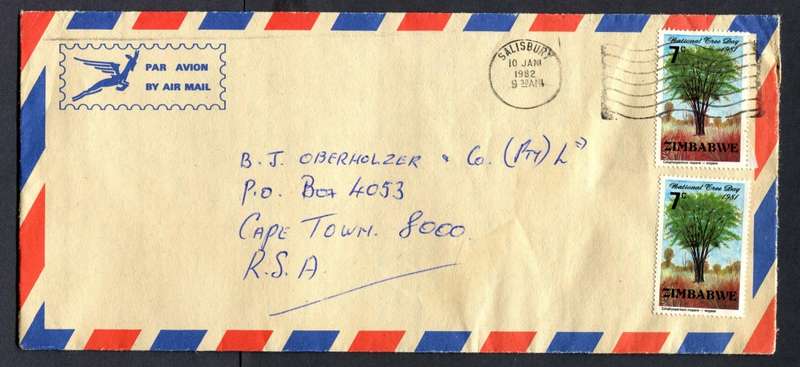 PAR AVION
BY AIR MAIL
SALISBURY
10 JAN
1982
9 30AM
National Tree Day
7c 1981
ZIMBABWE
B. J. OBERHOLZER & Co. (Pty) Ld
P.O. Box 4053
CAPE TOWN. 8000.
R.S.A.
National Tree Day
7c 1981
ZIMBABWE